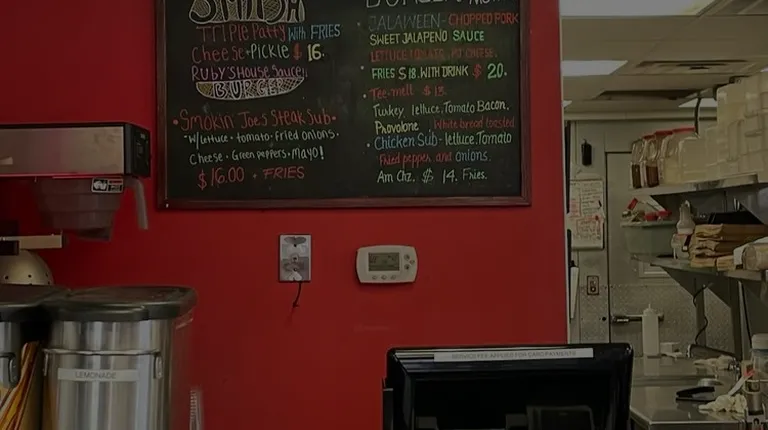 SMASH
TRIPle Patty With FRIES
Cheese+Pickle $ 16.
Ruby's House Sauce!
BURGER
• Smokin' Joe's Steak Sub •
"W/Lettuce • tomato • Fried onions •
Cheese • Green peppers • Mayo!
$16.00 • FRIES
JALAWEEN - CHOPPED PORK
SWEET JALAPENO SAUCE
LETTUCE TOMATO. CHEESE.
FRIES $18. WITH DRINK $ 20.
• Tee-melt $ 13.
Turkey lettuce, Tomato Bacon,
Provolone White bread toasted
• Chicken Sub - lettuce, Tomato
Fried pepper and onions.
Am Chz. $ 14. Fries.
LEMONADE
SERVICE FEE APPLIED FOR CARD PAYMENTS